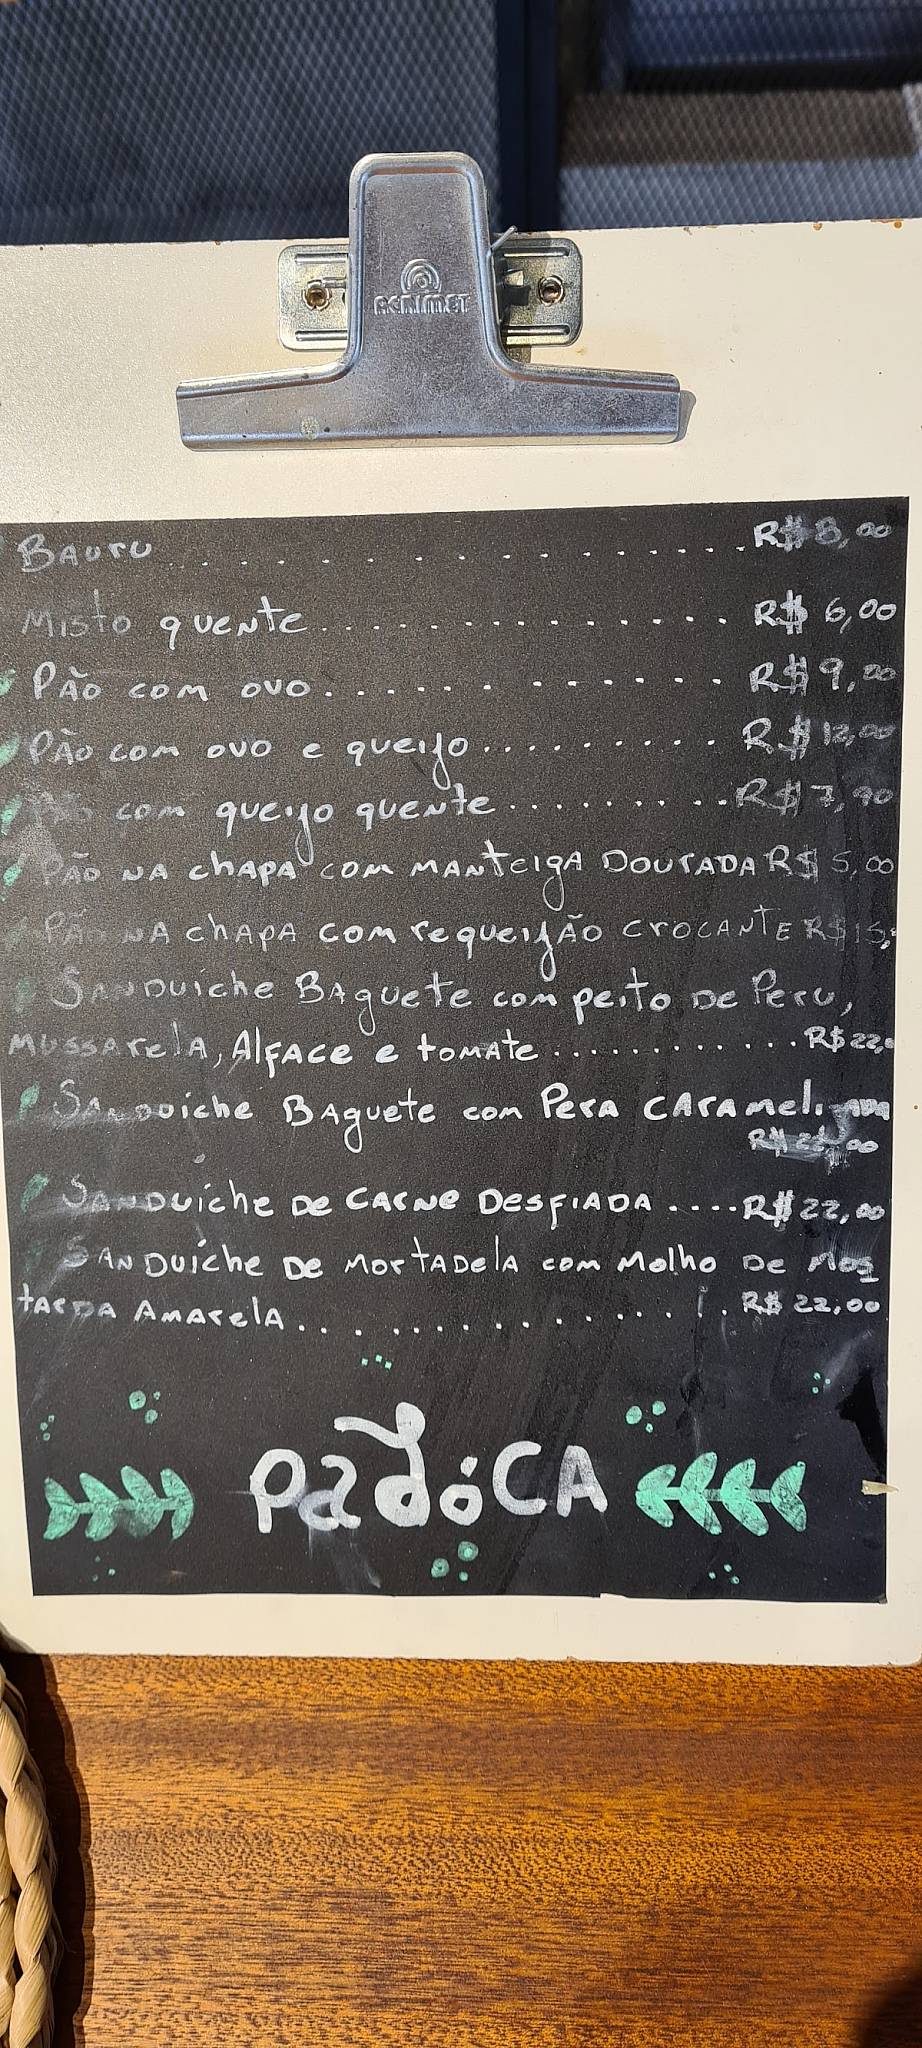 ACRIMET
Bauru R$ 8,00
Misto quente R$ 6,00
Pão com ovo R$ 9,00
Pão com ovo e queijo R$ 12,00
Pão com queijo quente R$ 7,90
Pão na chapa com manteiga dourada R$ 5,00
Pão na chapa com requeijão crocante R$
Sanduíche Baguete com peito de Peru,
mussarela, Alface e tomate R$ 22,
Sanduíche Baguete com Pera
R$
Sanduíche de carne desfiada R$ 22,00
Sanduíche de mortadela com molho de mos
tarda Amarela R$ 22,00
padóca